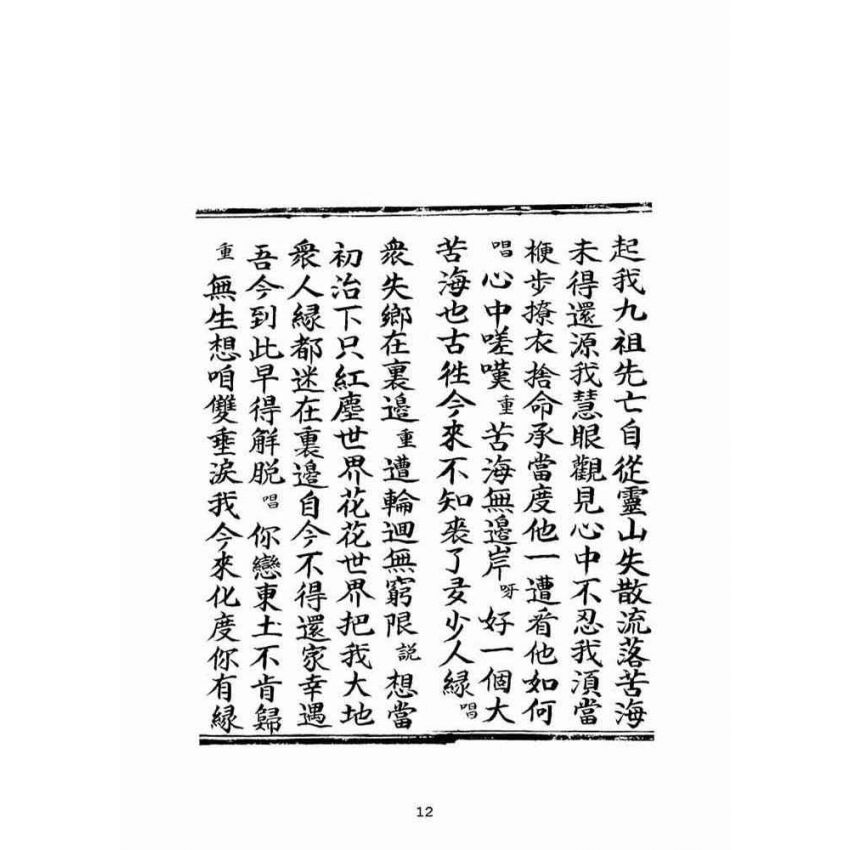 起我九祖先亡自從靈山失散流落苦海
未得還源我慧眼觀見心中不忍我湏當
梗步撩衣捨命承當度他一遭看他如何
唱心中嗟嘆重苦海無邊岸呀好一個大
苦海也古徃今來不知喪了多少人緣唱
衆失鄉在裏邊重遭輪迴無窮限説想當
初治下只紅塵世界花花世界把我大地
衆人緣都迷在裏邊自今不得還家幸遇
吾今到此早得解脱唱你戀東土不肯歸
重無生想咱雙垂淚我今來化度你有緣
12